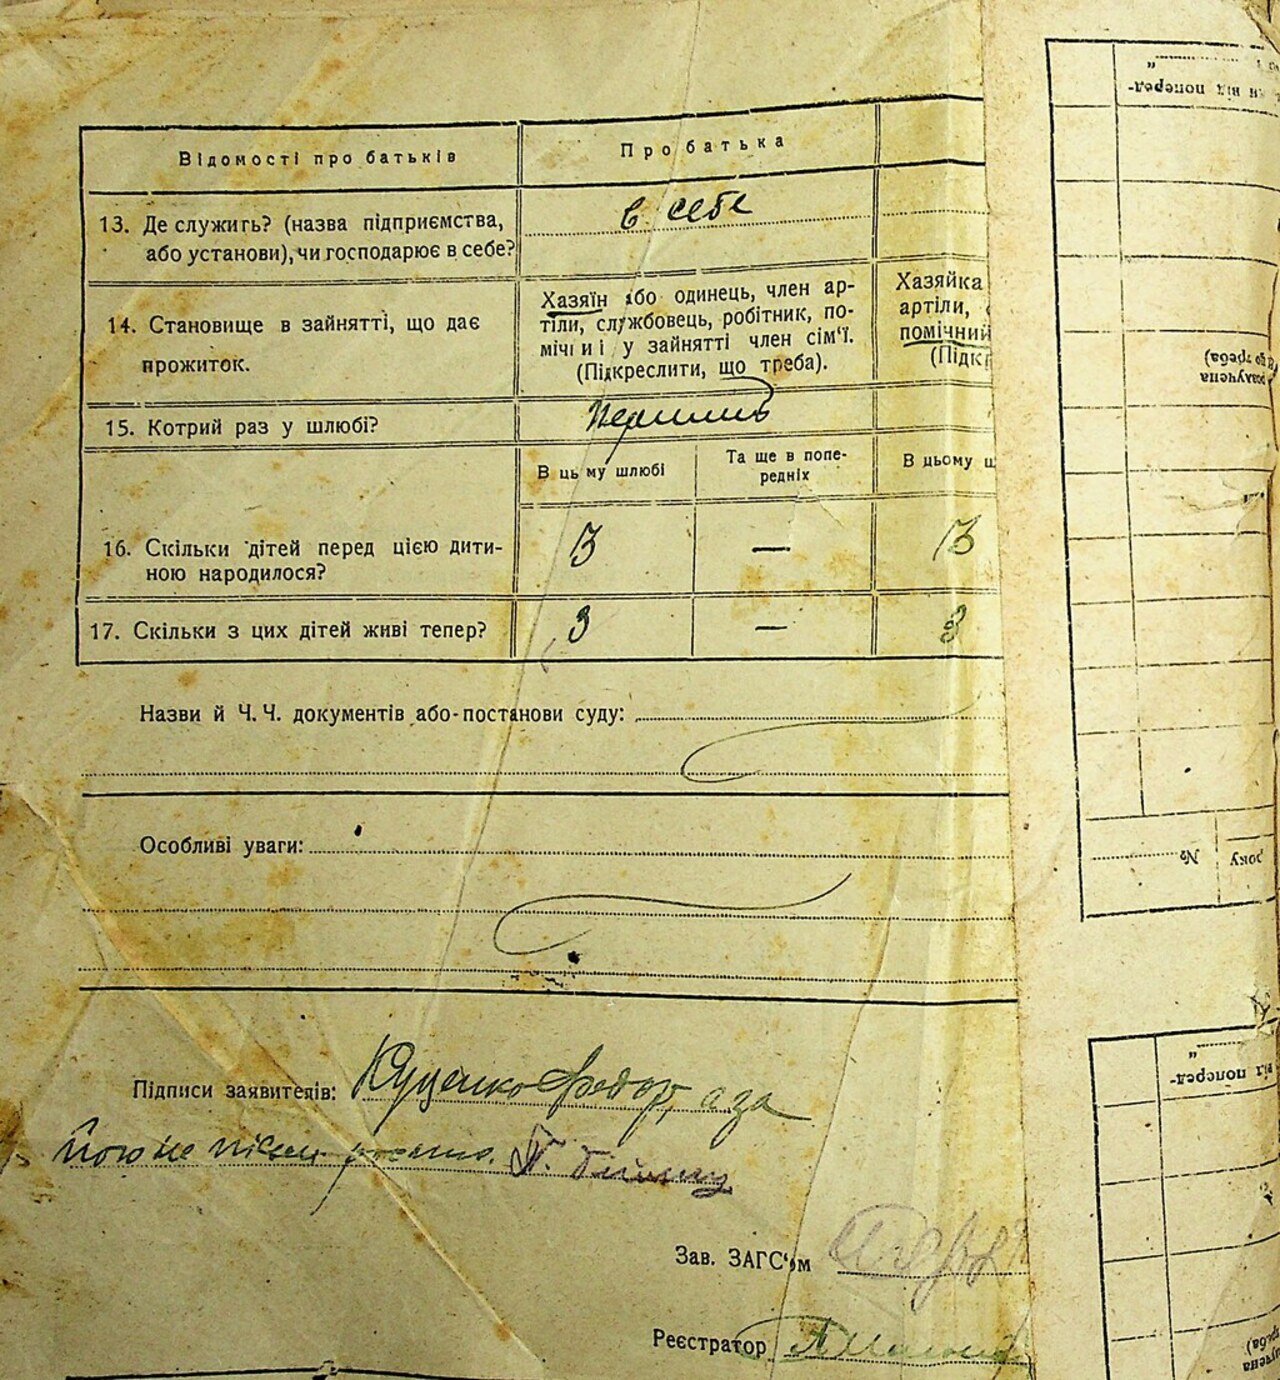 Відомості про батьків
Про батька
13. Де служить? (назва підприємства,
або установи), чи господарює в себе?
в себе
14. Становище в зайнятті, що дає
прожиток.
Хазяїн або одинець, член ар-
тіли, службовець, робітник, по-
мічний у зайнятті член сім'ї.
(Підкреслити, що треба).
Хазяйка
артіли,
помічний
(Підкр
15. Котрий раз у шлюбі?
В цьому шлюбі
Та ще в попе-
редніх
В цьому ш
16. Скільки дітей перед цією дити-
ною народилося?
3 — 3
17. Скільки з цих дітей живі тепер?
3 — 3
Назви й Ч. Ч. документів або постанови суду:
Особливі уваги:
Підписи заявителів: Куценко Федор, а за
його не письм
Зав. ЗАГС'ом
Реєстратор
від поперед-
розлучена
що треба)
№
року
від поперед-